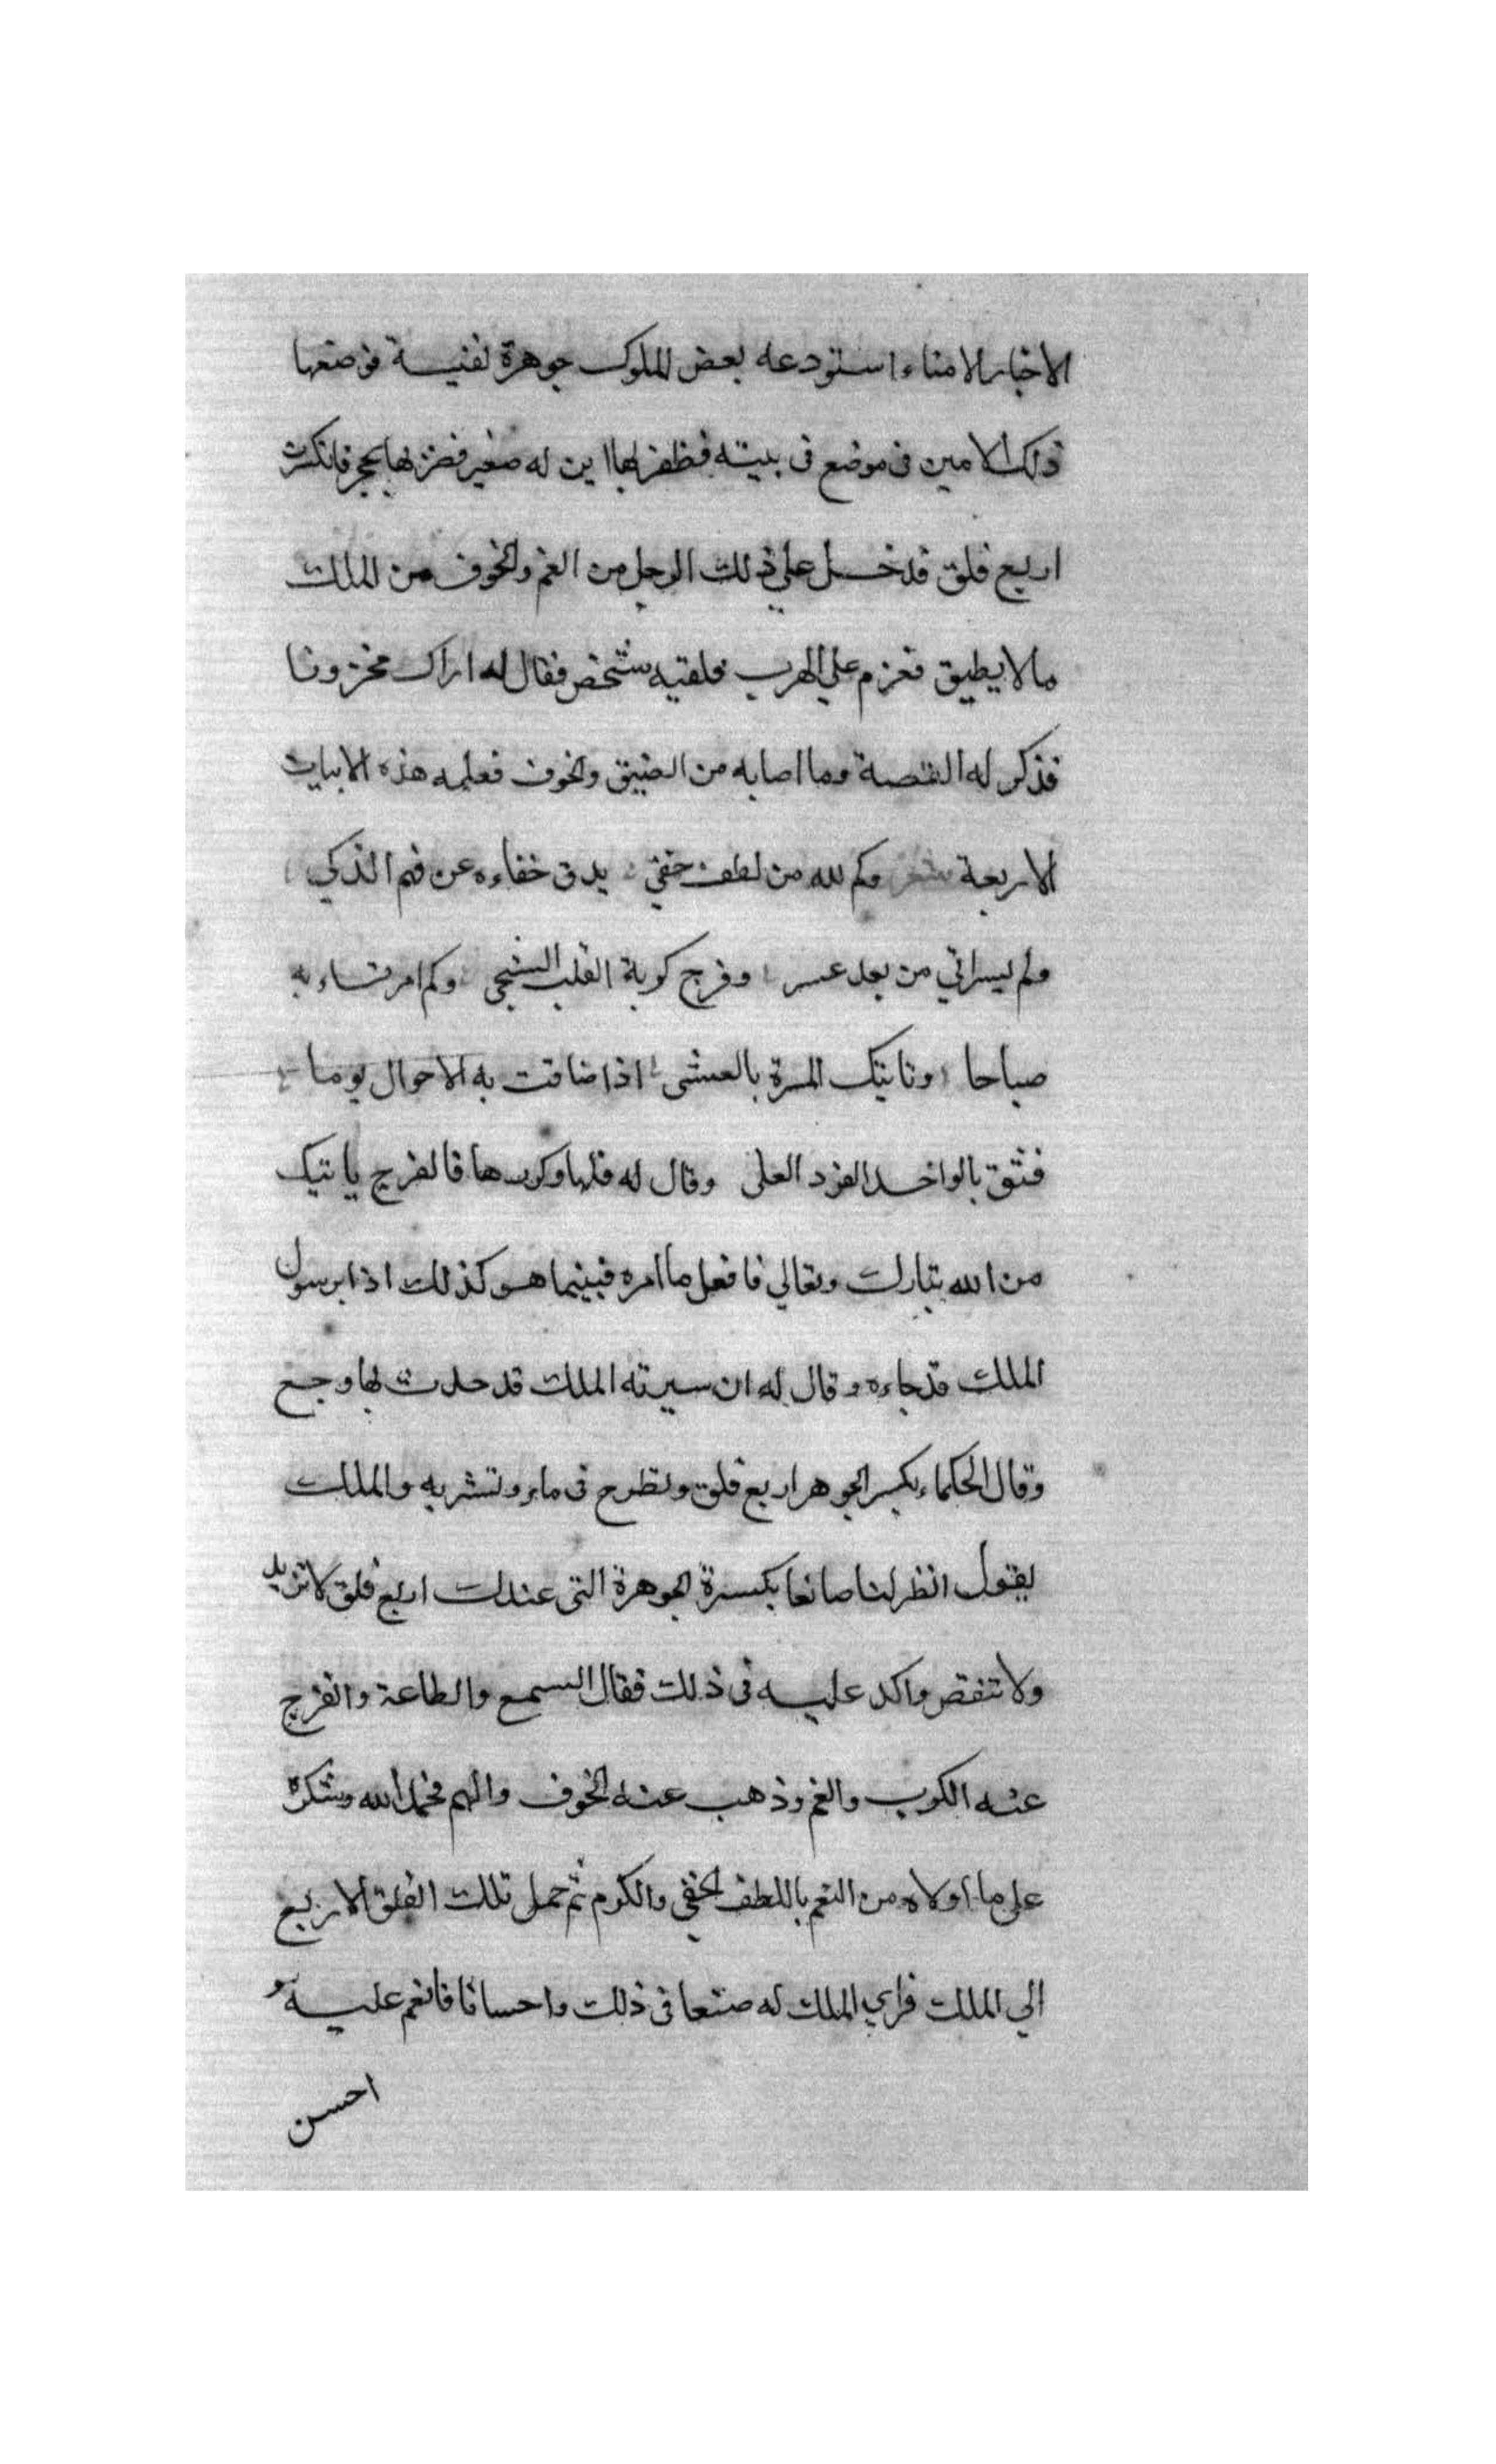 الاخيار الامناء استودعه بعض الملوك جوهرة نفيسة فوضعها
ذلك الامين فى موضع فى بيته فظفر بها ابن له صغير فضربها بحجر فانكسرت
اربع فلق فدخل على ذلك الرجل من الغم والخوف من الملك
مالا يطيق فعزم على الهرب فلقيه شخص فقال له اراك محزونا
فذكر له القصة وما اصابه من الضيق والخوف فعلمه هذه الابيات
الاربعة شعر وكم لله من لطف خفي يدق خفاءه عن فهم الذكي
وكم يسر اتي من بعد عسر وفرج كربة القلب الشجى وكم امر تساء به
صباحا وتاتيك المسرة بالعشى اذا ضاقت به الاحوال يوما
فثق بالواحد الفرد العلى وقال له قلها وكررها فالفرج ياتيك
من الله تبارك وتعالي فافعل ما امره فبينما هو كذلك اذا برسول
الملك قد جاءه وقال له ان سيرته الملك قد حدث بها وجع
وقال الحكماء بكسر الجوهر اربع فلق وتطرح فى ماء وتشربه والملك
يقول انظر لنا صانعا بكسرة الجوهرة التى عندك اربع فلق لا تزيد
ولا تنقص واكد عليه فى ذلك فقال السمع والطاعة وانفرج
عنه الكرب والغم وذهب عنه الخوف والهم فحمد الله وشكره
على ما اولاه من النعم باللطف الخفي والكرم ثم حمل تلك الفلق الاربع
الي الملك فراي الملك له صنعا فى ذلك واحسانا فانعم عليه
احسن